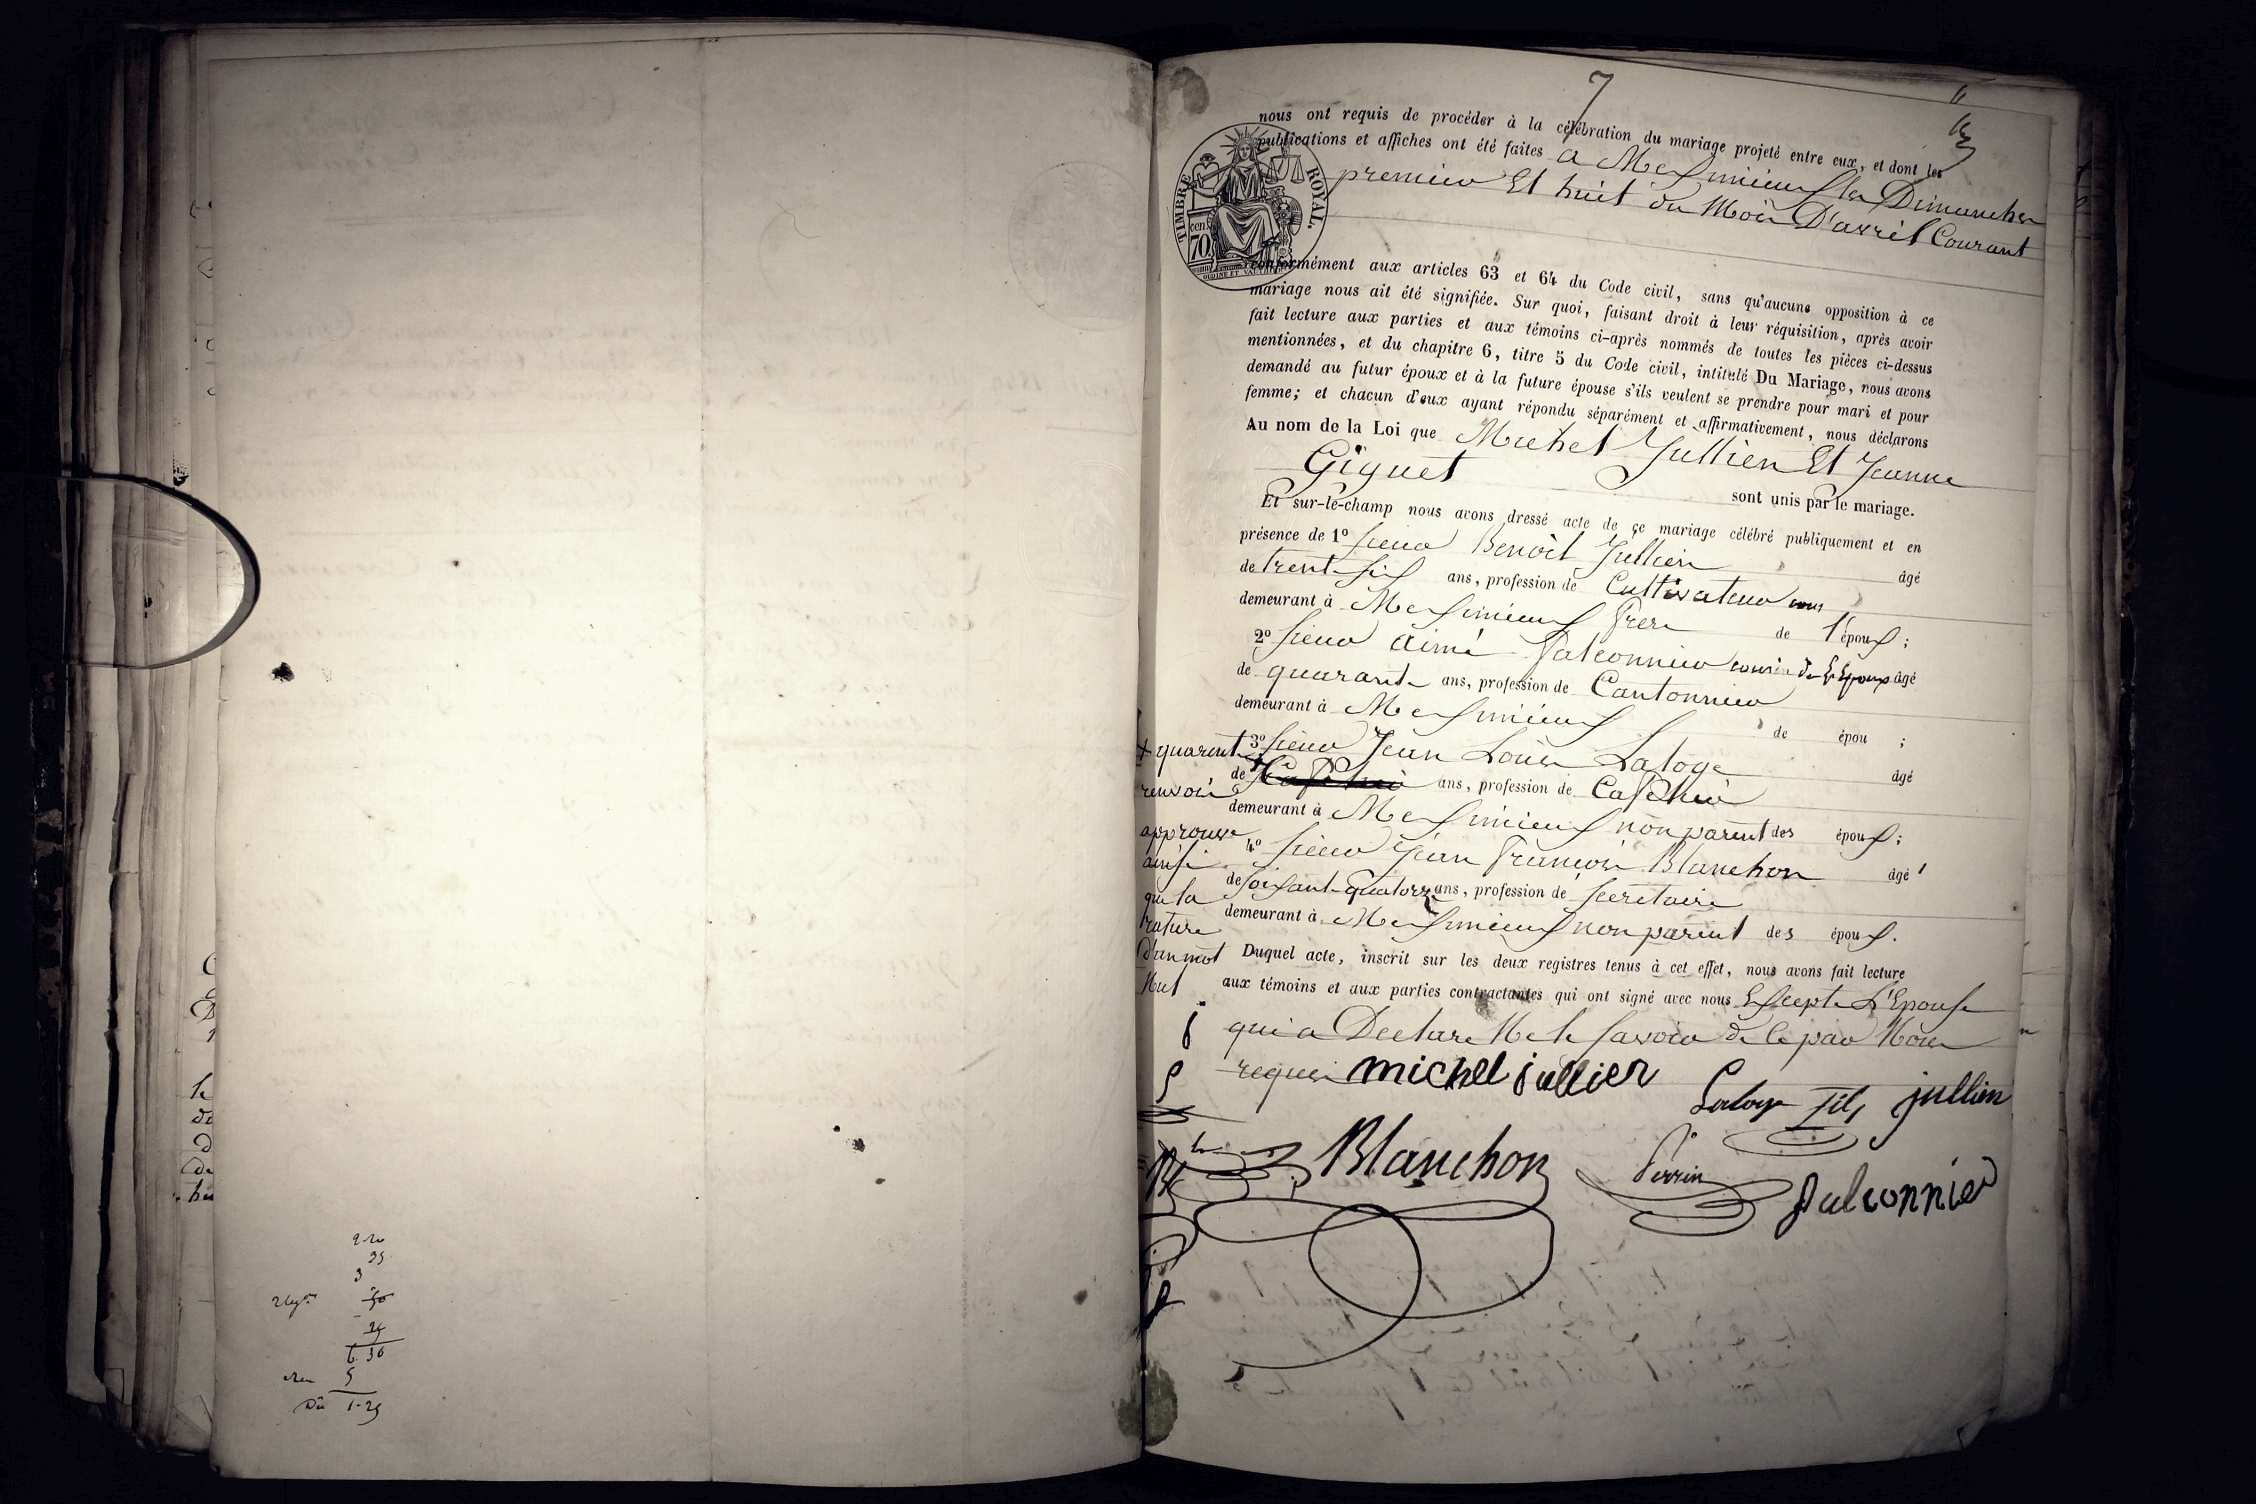 7
nous ont requis de procéder à la célébration du mariage projeté entre eux, et dont les
publications et affiches ont été faites a Messimieux les Dimanches
premier Et huit du Mois D'avril Courant
TIMBRE ROYAL.
cen. 70.
conformément aux articles 63 et 64 du Code civil, sans qu'aucune opposition à ce
mariage nous ait été signifiée. Sur quoi, faisant droit à leur réquisition, après avoir
fait lecture aux parties et aux témoins ci-après nommés de toutes les pièces ci-dessus
mentionnées, et du chapitre 6, titre 5 du Code civil, intitulé Du Mariage, nous avons
demandé au futur époux et à la future épouse s'ils veulent se prendre pour mari et pour
femme; et chacun d'eux ayant répondu séparément et affirmativement, nous déclarons
Au nom de la Loi que Michel Jullien Et Jeanne
Giguet
sont unis par le mariage.
Et sur-le-champ nous avons dressé acte de ce mariage célébré publiquement et en
présence de 1º sieur Benoit Jullien âgé
de trent six ans, profession de Cultivateur
demeurant à Messimieux frere de l'époux;
2º sieur aimé falconnier cousin de L'Epoux âgé
de quarante ans, profession de Cantonnier
demeurant à Messimieux de épou ;
3º sieur Jean Louis Laloge âgé
de ans, profession de Caffetier
demeurant à Messimieux non parent des époux;
4º sieur Jean François Blanchon âgé
de soixant-quatorze ans, profession de secretaire
demeurant à Messimieux non parent des époux.
Duquel acte, inscrit sur les deux registres tenus à cet effet, nous avons fait lecture
aux témoins et aux parties contractantes qui ont signé avec nous Excepté L'Epouse
qui a Declaré Ne le savoir de ce par Nous
requis michel jullien
Laloge fils jullien
Blanchon Perrin falconnier
+ quarent
renvoi
approuvé
ainsi
que la
rature
d'un mot
Nul
2-20
35
3
50
25
6.30
5
Dû 1-25